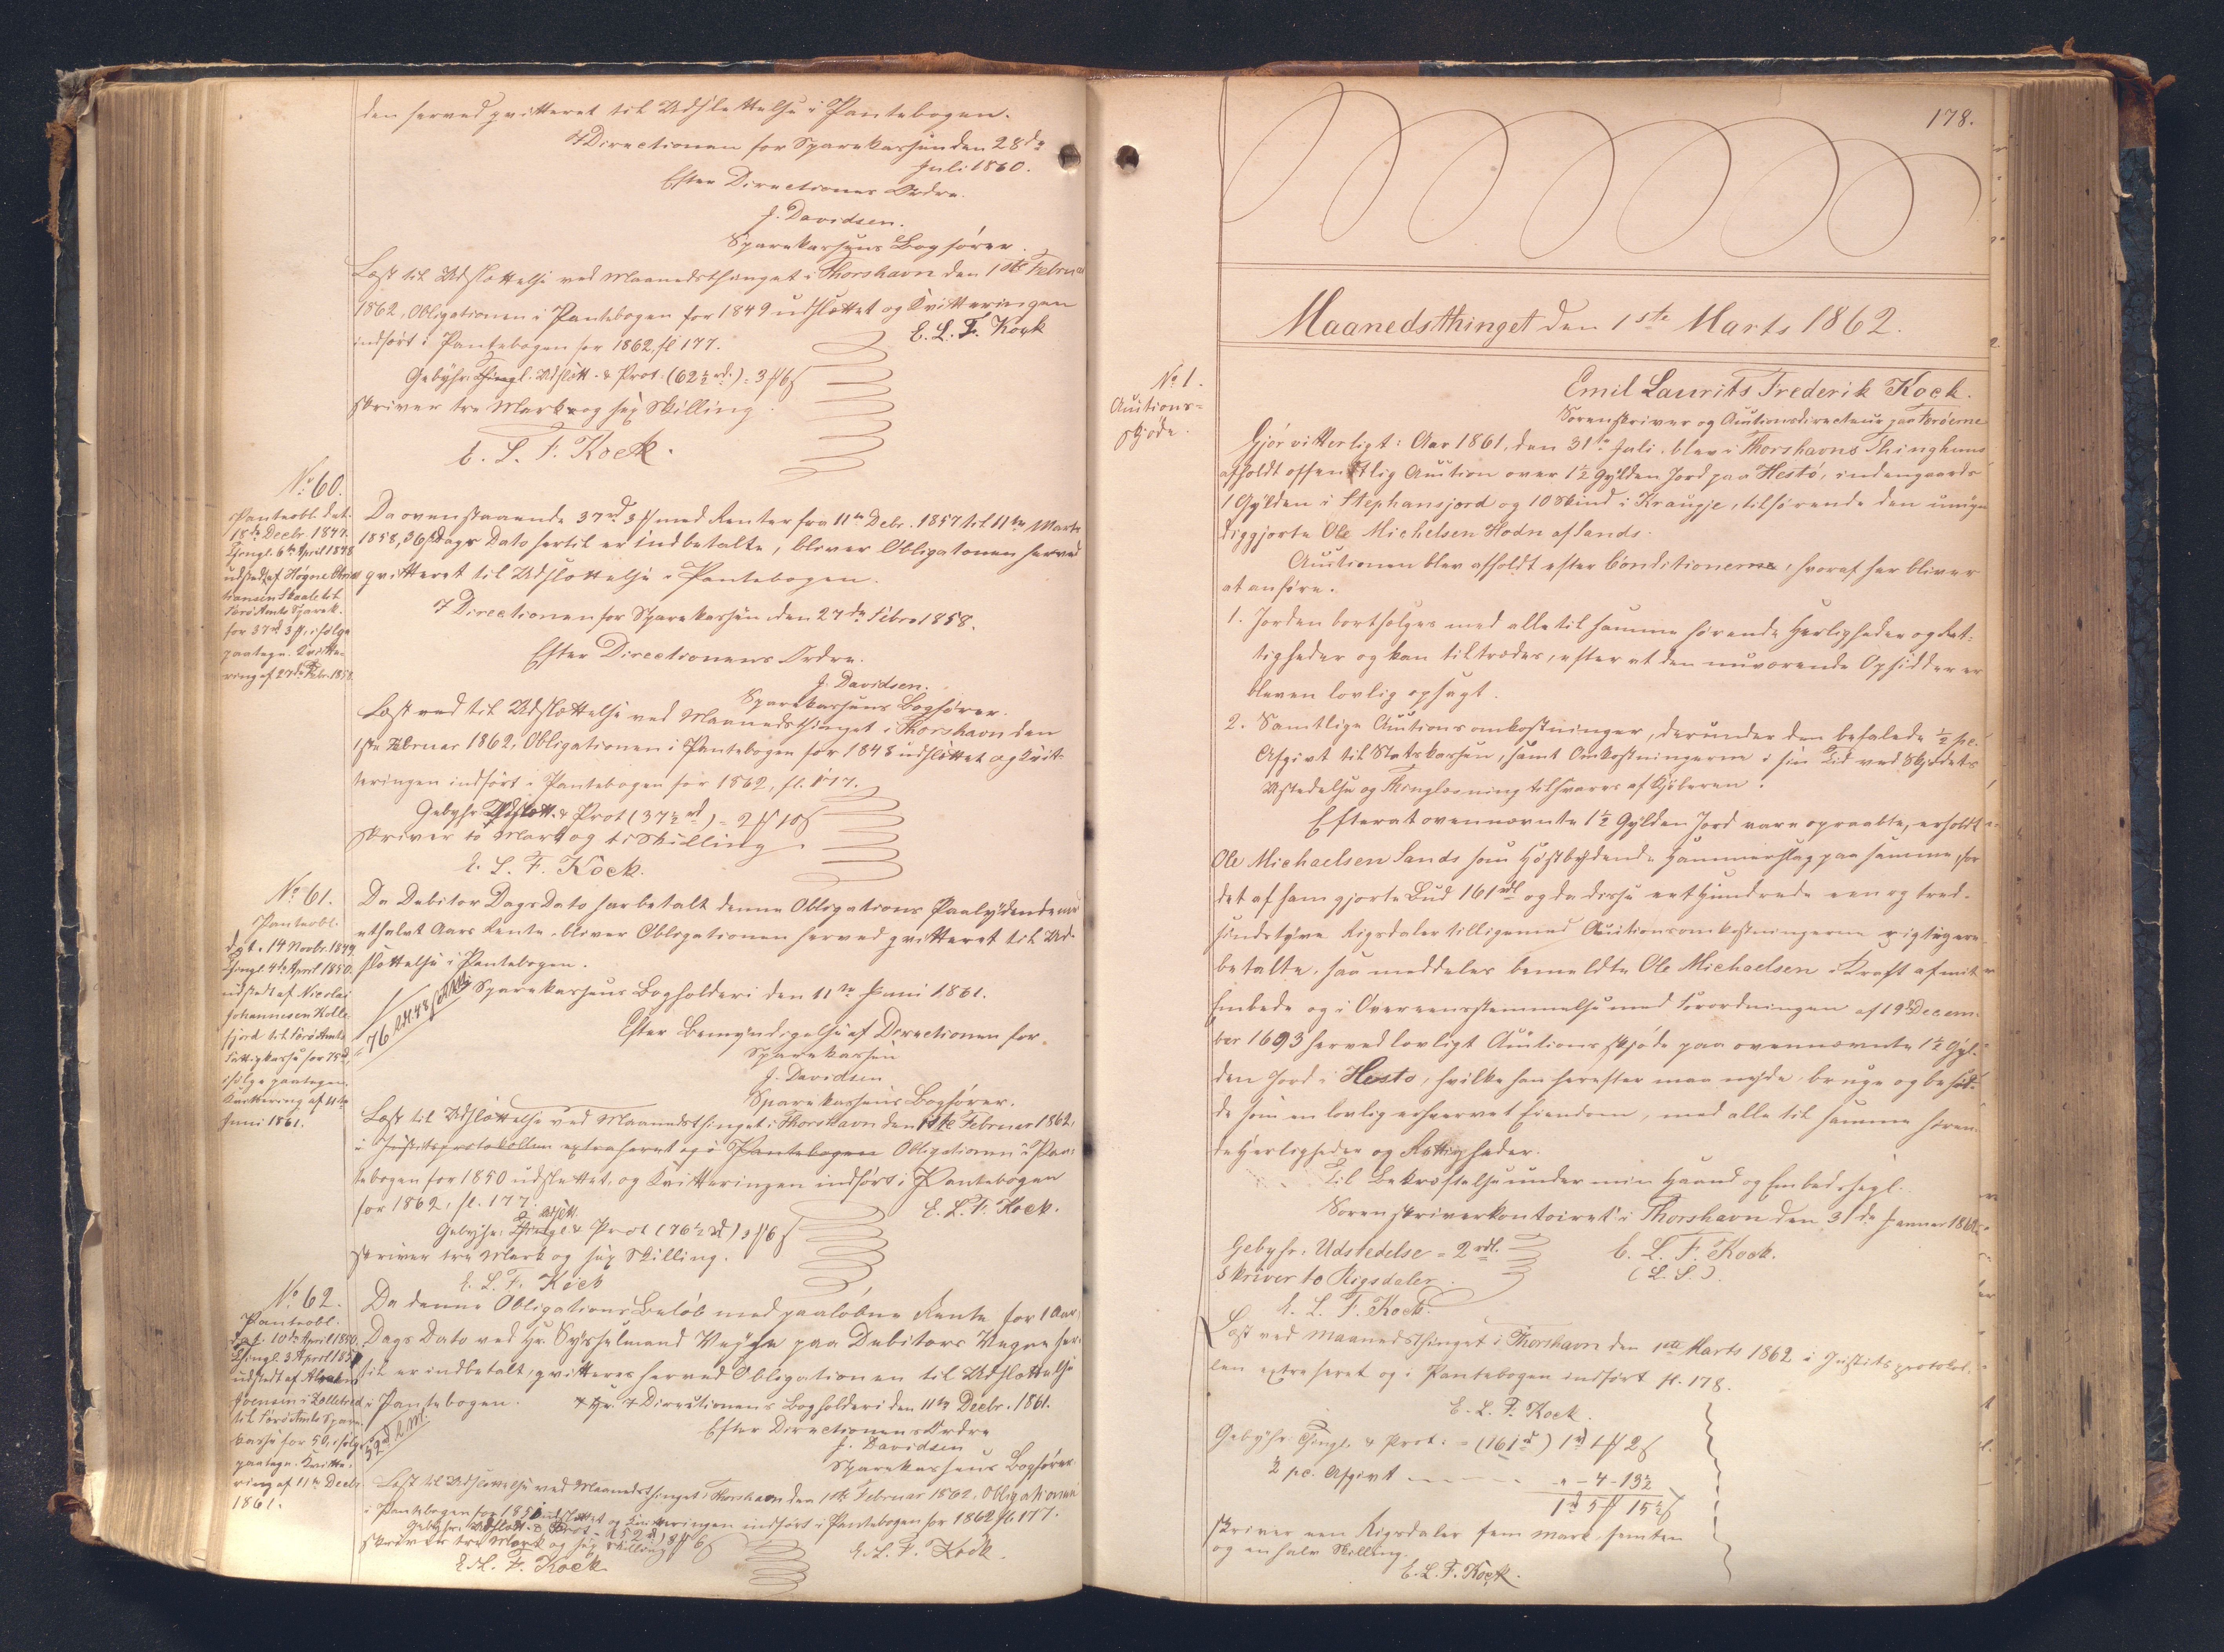 den herved qvitteret til Udslettelse i Pantebogen.
I Directionen for Sparekassen den 28de
Juli 1860.
Efter Directionens Ordre.
J. Davidsen.
Sparekassens Bogfører.
Læst til Udslettelse ved Maanedsthinget i Thorshavn den 1ste Februar
1862, Obligationen i Pantebogen for 1849 udslettet og Kvitteringen
indført i Pantebogen for 1862, fl 177.
E. L. F. Kock
Gebyhr: Thingl. Udslett. & Prot: (62½ rd.) = 3 # 6 ß
skriver tre Mark og sex Skilling.
E. L. F. Kock.
No. 60.
Panteobl. dat.
18de Decbr 1847.
Thingl. 6te April 1848
udstedt af Høgne
hansen Skaale til
Færø Amts Sparek.
for 37 rd 3 #, ifølge
paategn. Qvitte-
ring af 27de Febr. 1858.
Da ovenstaaende 37 rd 3 # med Renter fra 11te Decbr. 1857 til 11te Marts
1858, 36 ß Dags Dato hertil er indbetalte, bliver Obligationen herved
qvitteret til Udslettelse i Pantebogen.
I Directionen for Sparekassen den 27de Febr 1858.
Efter Directionens Ordre.
J. Davidsen.
Sparekassens Bogfører.
Læst ved til Udslettelse ved Maanedsthinget i Thorshavn den
1ste Februar 1862, Obligationen i Pantebogen for 1848 udslettet og Qvit-
teringen indført i Pantebogen for 1862, fl. 177.
Gebyhr Udslett. & Prot (37½ rd) = 2 # 10 ß
skriver to Mark og ti Skilling.
E. L. F. Kock.
No. 61.
Panteobl.
dat. 14 Novbr. 1849.
Thingl. 4de April 1850.
udstedt af Nicolai
Johannesen Kolle-
fjord til Færø Amts
Fattigkasse for 75 rd,
ifølge paategn.
Kvittering af 11te
Juni 1861.
Da Debitor Dags Dato har betalt denne Obligations Paalydende med
et halvt Aars Rente, bliver Obligationen herved qvitteret til Ud-
slettelse i Pantebogen.
Sparekassens Bogholderi den 11te Juni 1861.
Efter Bemyndigelse af Directionen for
Sparekassen
J. Davidsen
Sparekassens Bogfører.
Læst til Udslettelse ved Maanedsthinget i Thorshavn den 1ste Februar 1862,
i Justitsprotokollen extraheret og i Pantebogen Obligationen i Pan-
tebogen for 1850 udslettet, og Kvitteringen indført i Pantebogen
for 1862, fl. 177.
E. L. F. Kock.
Gebyhr: Thingl. Udslett. & Prot (76½ rd) 3 # 6 ß
skriver tre Mark og sex Skilling.
E. L. F. Kock
No. 62.
Panteobl.
dat. 10de April 1850.
Thingl. 3 April 1851
udstedt af
Joensen i
til Færø Amts Spare-
kasse for 50, ifølge
paategn. Kvitte-
ring af 11te Decbr
1861.
Da denne Obligations Beløb med paaløbne Rente for 1 Aar,
Dags Dato ved Hr. Sysselmand Weyhe paa Debitors Vegne her-
til er indbetalt, qvitteres herved Obligationen til Udslettelse
i Pantebogen. I Directionens Bogholderi den 11te Decbr. 1861.
Efter Directionens Ordre
J. Davidsen
Sparekassens Bogfører
Læst til Udslettelse ved Maanedsthinget i Thorshavn den 1ste Februar 1862, Obligationen
i Pantebogen for 1851 udslettet og Kvitteringen indført i Pantebogen for 1862 fl. 177.
Gebyhr: Udslett. & Prot - (52 rd) 3 # 6 ß
skriver tre Mark og sex Skilling
E. L. F. Kock.
E. L. F. Kock
178.
Maanedsthinget den 1ste Marts 1862.
No. 1.
Auctions-
skjøde.
Emil Laurits Frederik Kock.
Sorenskriver og Auctionsdirecteur paa Færöerne
Gjør vitterligt: Aar 1861, den 31te Juli, blev i Thorshavns Thinghuus
afholdt offentlig Auction over 1½ Gylden Jord paa Hestø, indengaards
1 Gylden i Stephansjord og 10 Skind i Kraugje, tilhørende den umyn-
diggjorte Ole Michelsen Hodn af Sands.
Auctionen blev afholdt efter Conditionerne, hvoraf her bliver
at anføre.
1. Jorden bortsælges med alle til samme hørende Herligheder og Ret-
tigheder og kan tiltrædes, efter at den nuværende Opsidder er
bleven lovlig opsagt.
2. Samtlige Auctionsomkostninger, derunder den befalede ½ pc.
Afgivt til Statskassen, samt Omkostningerne i sin Tid ved Skjødets
Udstedelse og Thinglæsning tilsvares af Kjøberen.
Efterat ovennævnte 1½ Gylden Jord vare opraabte, erholdt
Ole Michaelsen Sands som Høistbydende Hammerslag paa samme, for
det af ham gjorte Bud 161 rdl og da disse eet Hundrede een og tred-
sindstyve Rigsdaler tilligemed Auctionsomkostningerne rigtigen
betalte, saa meddeles bemeldte Ole Michaelsen i Kraft af mit
Embede og i Overeensstemmelse med Forordningen af 19de Decem-
ber 1693 herved lovligt Auctionsskjøde paa ovennævnte 1½ Gyl-
den Jord i Hestø, hvilke han herefter maa nyde, bruge og besid-
de som en lovlig erhvervet Eiendom, med alle til samme høren-
de Herligheder og Rettigheder.
Til Bekræftelse under min Haand og Embedssegl.
Sorenskriverkontoiret i Thorshavn den 31te Januar 1862
Gebyhr, Udstedelse = 2 rdl.
skriver to Rigsdaler.
E. L. F. Kock.
E. L. F. Kock.
(L. S.).
Læst ved Maanedsthinget i Thorshavn den 1ste Marts 1862 i Justitsprotokol-
len extraheret og i Pantebogen indført fl. 178.
E. L. F. Kock.
Gebyhr: Thingl. & Prot: = (161 rd) 1 rd 1 # 2 ß
½ pc. Afgivt - - - - - " - 4 - 13½
1 rd 5 # 15½ ß
skriver een Rigsdaler fem Mark femten
og en halv Skilling.
E. L. F. Kock.